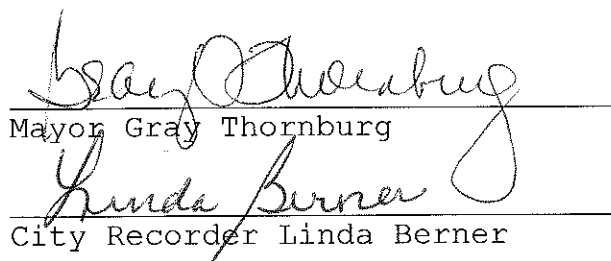 Gray Thornburg
Mayor Gray Thornburg
Linda Berner
City Recorder Linda Berner